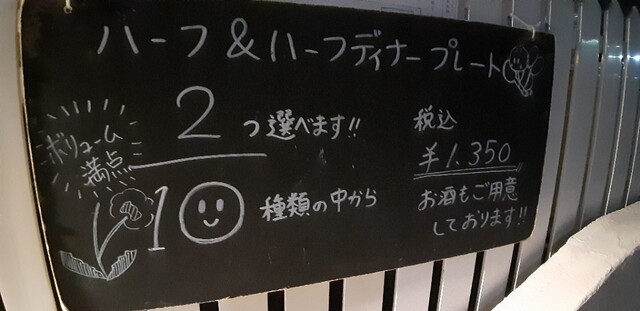 ハーフ&ハーフディナープレート
ボリューム
満点
2つ選べます!!
10種類の中から
税込
¥1,350
お酒もご用意
しております!!